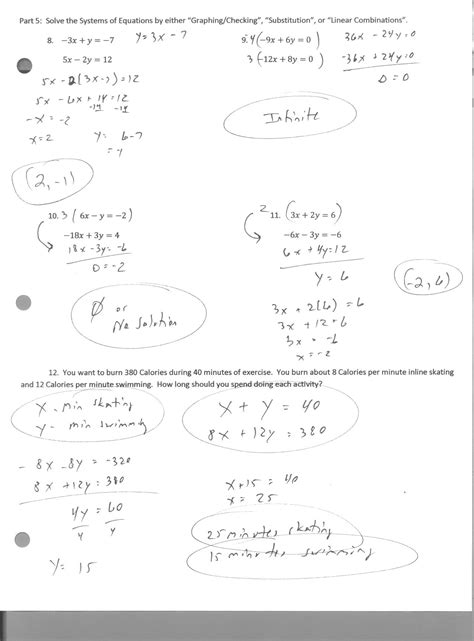 Part 5: Solve the Systems of Equations by either "Graphing/Checking", "Substitution", or "Linear Combinations".
8. -3x + y = -7 y = 3x - 7
5x - 2y = 12
5x - 2(3x-7) = 12
5x - 6x + 14 = 12
-14 -14
-x = -2
x = 2 y = 6-7
= -1
(2, -1)
9. 4(-9x + 6y = 0) 36x - 24y = 0
3(-12x + 8y = 0) -36x + 24y = 0
0 = 0
Infinite
10. 3(6x - y = -2)
-18x + 3y = 4
18x - 3y = -6
0 = -2
Ø or
No solution
2 11. (3x + 2y = 6)
-6x - 3y = -6
6x + 4y = 12
y = 6
(-2, 6)
3x + 2(6) = 6
3x + 12 = 6
3x = -6
x = -2
12. You want to burn 380 Calories during 40 minutes of exercise. You burn about 8 Calories per minute inline skating
and 12 Calories per minute swimming. How long should you spend doing each activity?
x - min skating
y - min swimming
x + y = 40
8x + 12y = 380
-8x - 8y = -320
8x + 12y = 380
4y = 60
4 4
y = 15
x + 15 = 40
x = 25
25 minutes skating
15 minutes swimming